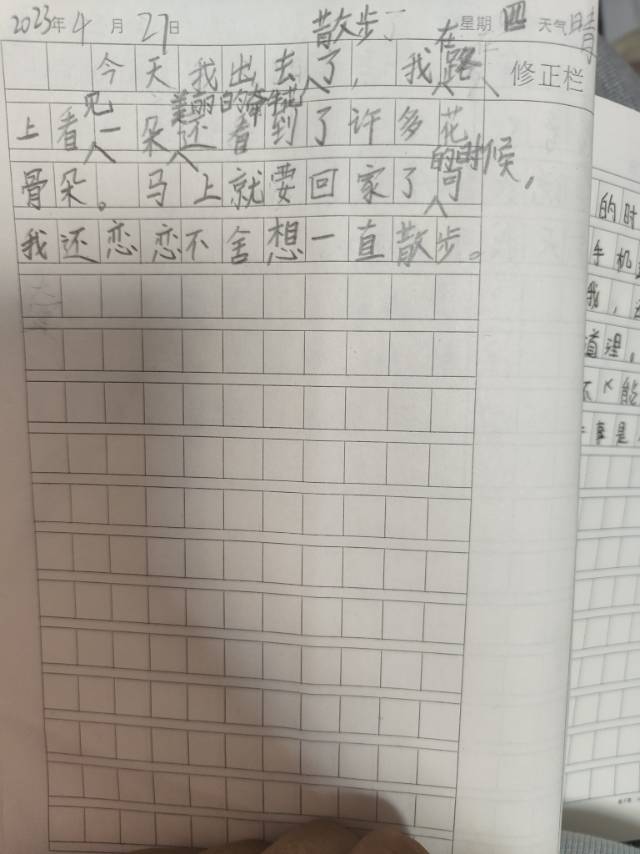 2023年4月27日 星期四 天气晴
散步
在
今天我出去了，我路
修正栏
见 美丽的牵牛花
上看一朵还看到了许多花
的时候，
骨朵。马上就要回家了可
我还恋恋不舍想一直散步。
的时
手机
我，
道理，
不 能
事是